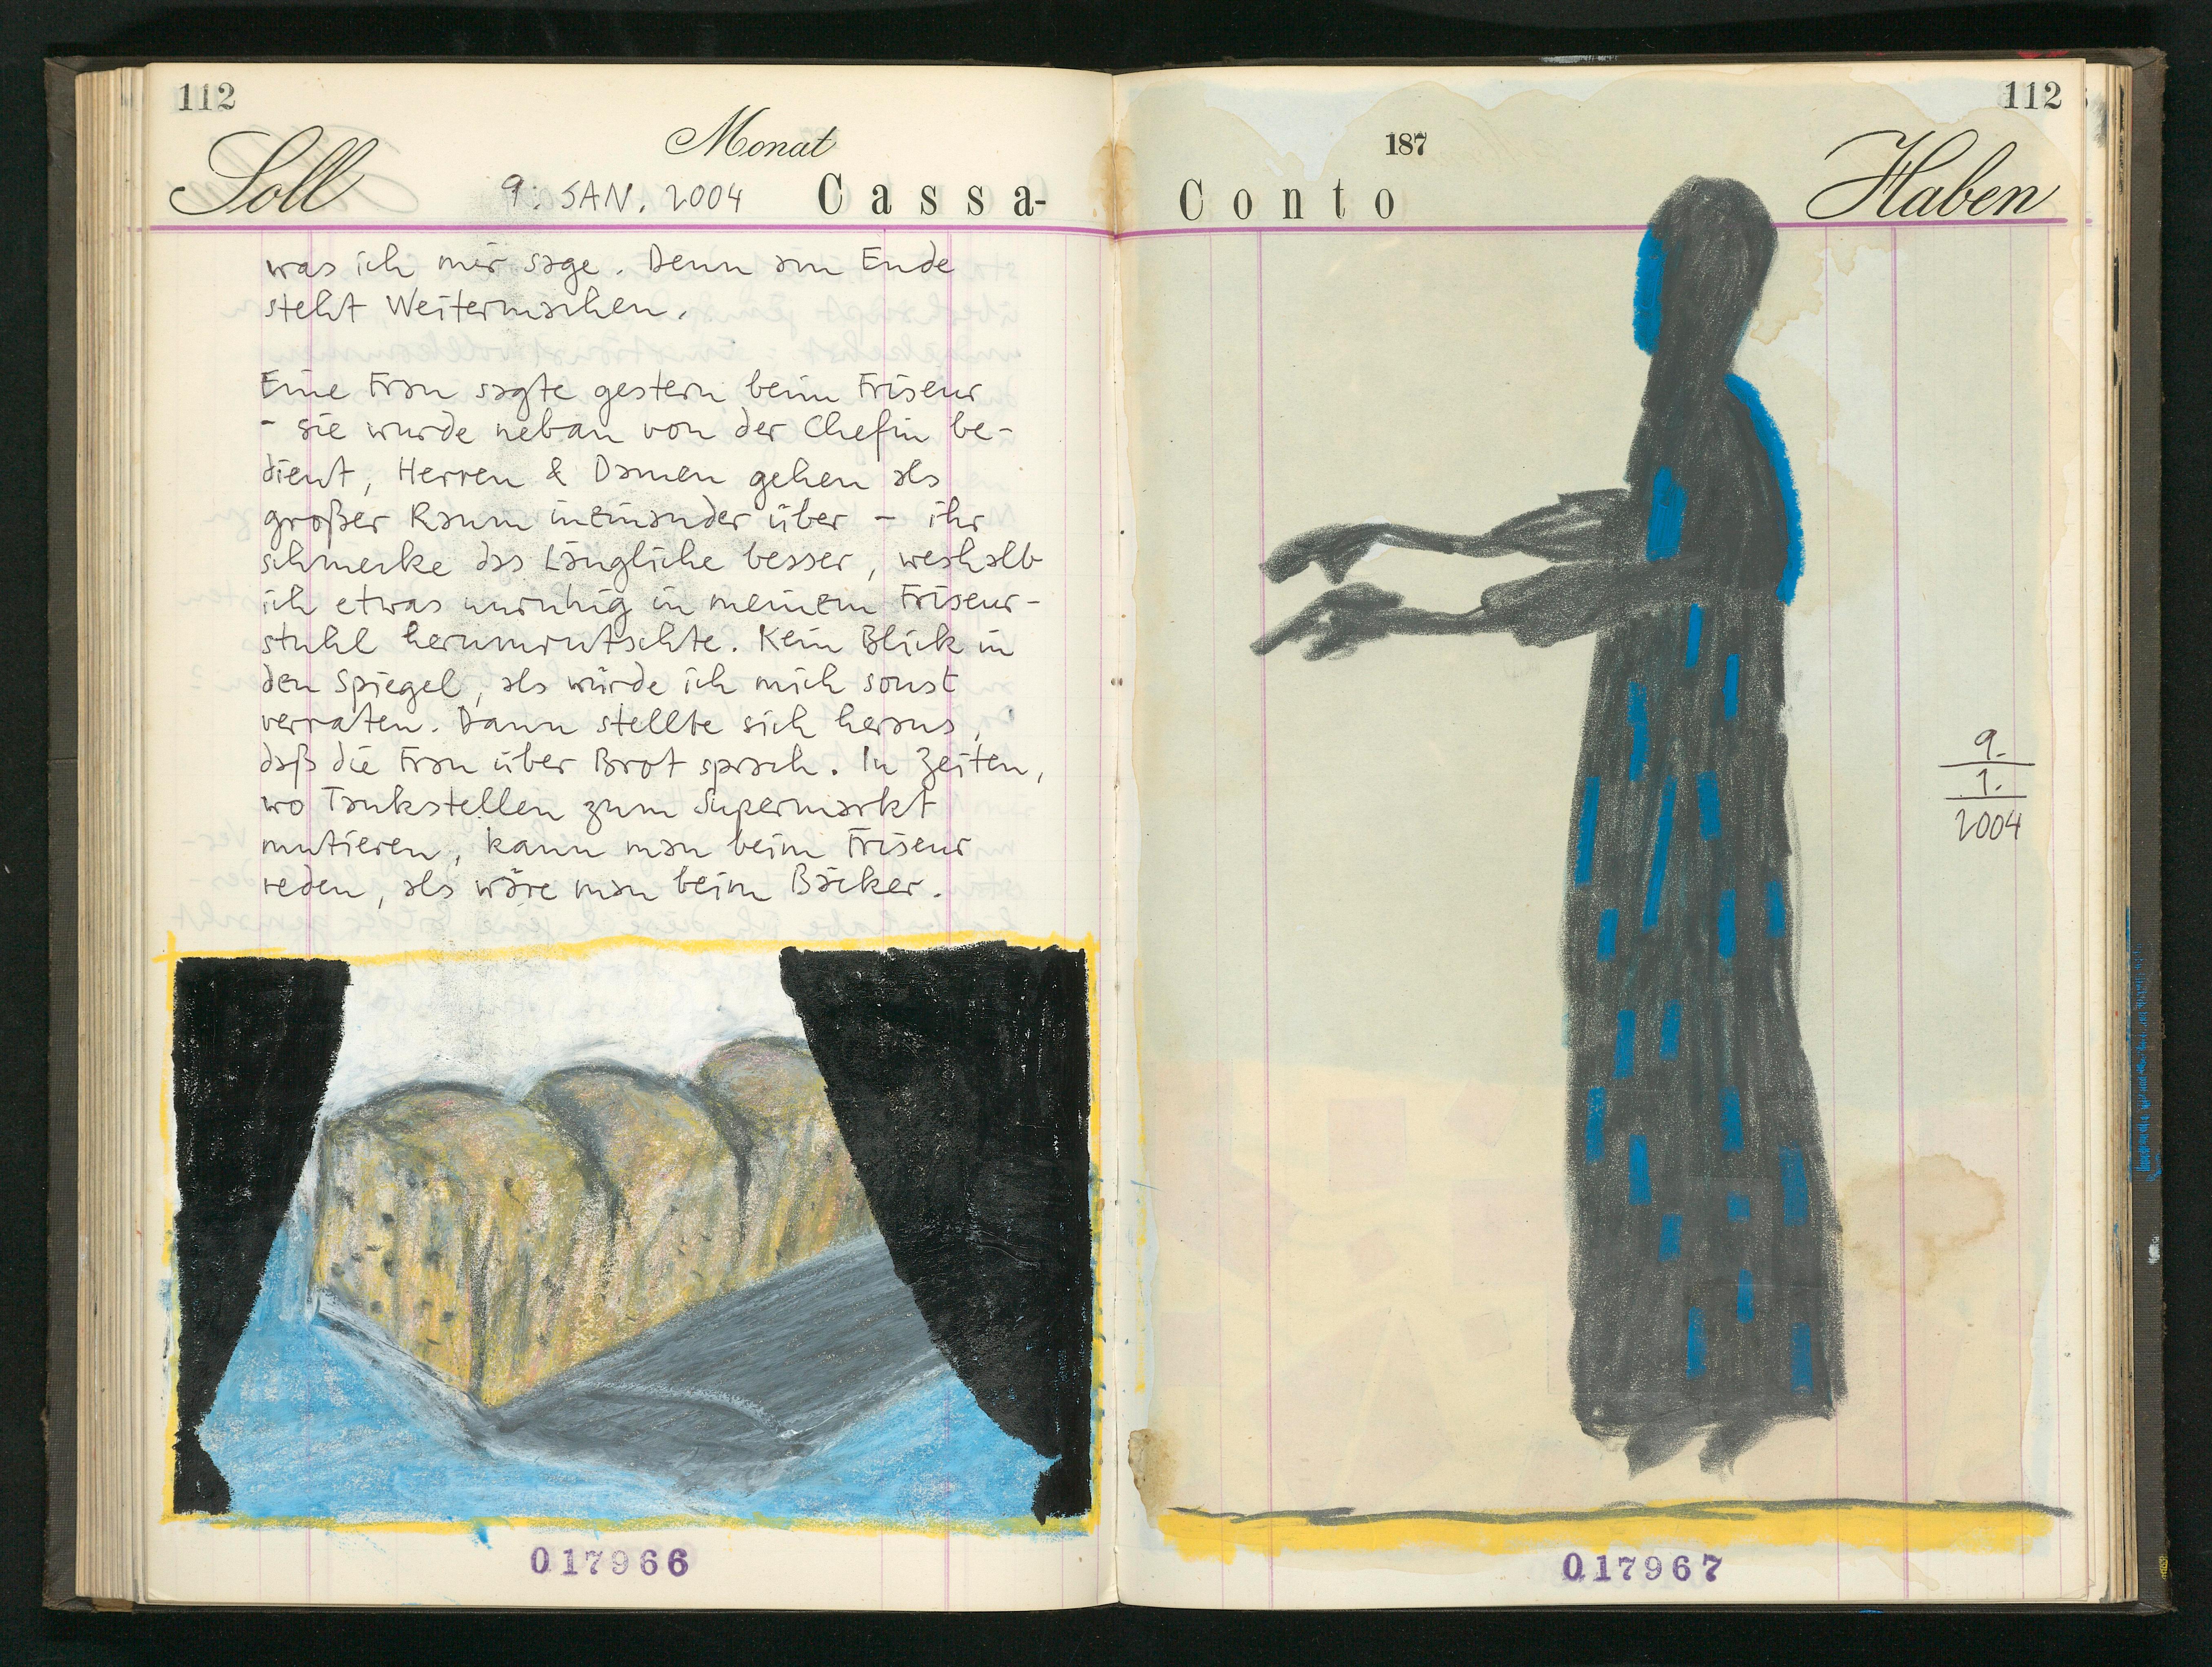 112
Monat
Soll
9. JAN. 2004
Cassa-
was ich mir sage. Denn am Ende
steht Weitermachen.
Eine Frau sagte gestern beim Friseur
- sie wurde neban von der Chefin be-
dient, Herren & Damen gehen als
großer Raum ineinander über - ihr
schmecke das Längliche besser, weshalb
ich etwas unruhig in meinem Friseur-
stuhl herumrutschte. Kein Blick in
den Spiegel, als würde ich mich sonst
verraten. Dann stellte sich heraus,
daß die Frau über Brot sprach. In Zeiten,
wo Tankstellen zum Supermarkt
mutieren, kann man beim Friseur
reden, als wäre man beim Bäcker.
017966
112
187
Conto
Haben
9.
1.
2004
017967